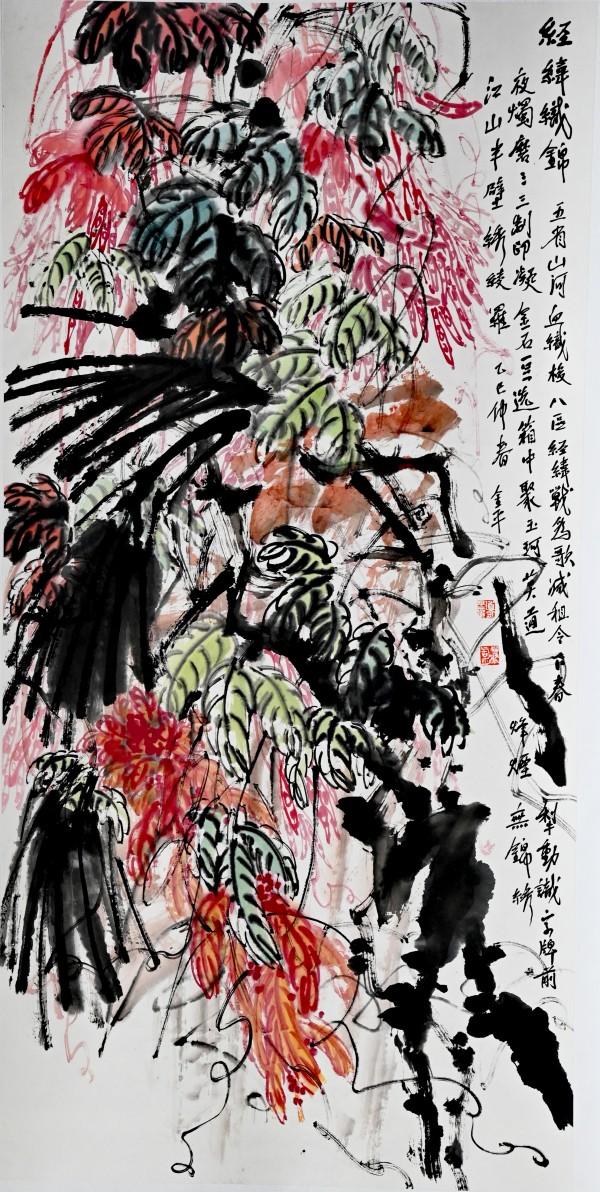 經緯織錦 五省山河血織梭八區經緯戰爲歌減租令下春犁動識字牌前
夜燭磨三三制印凝金石豆選箱中聚玉珂莫道烽煙無錦綉
江山半壁綉綾羅 乙巳仲春 金平